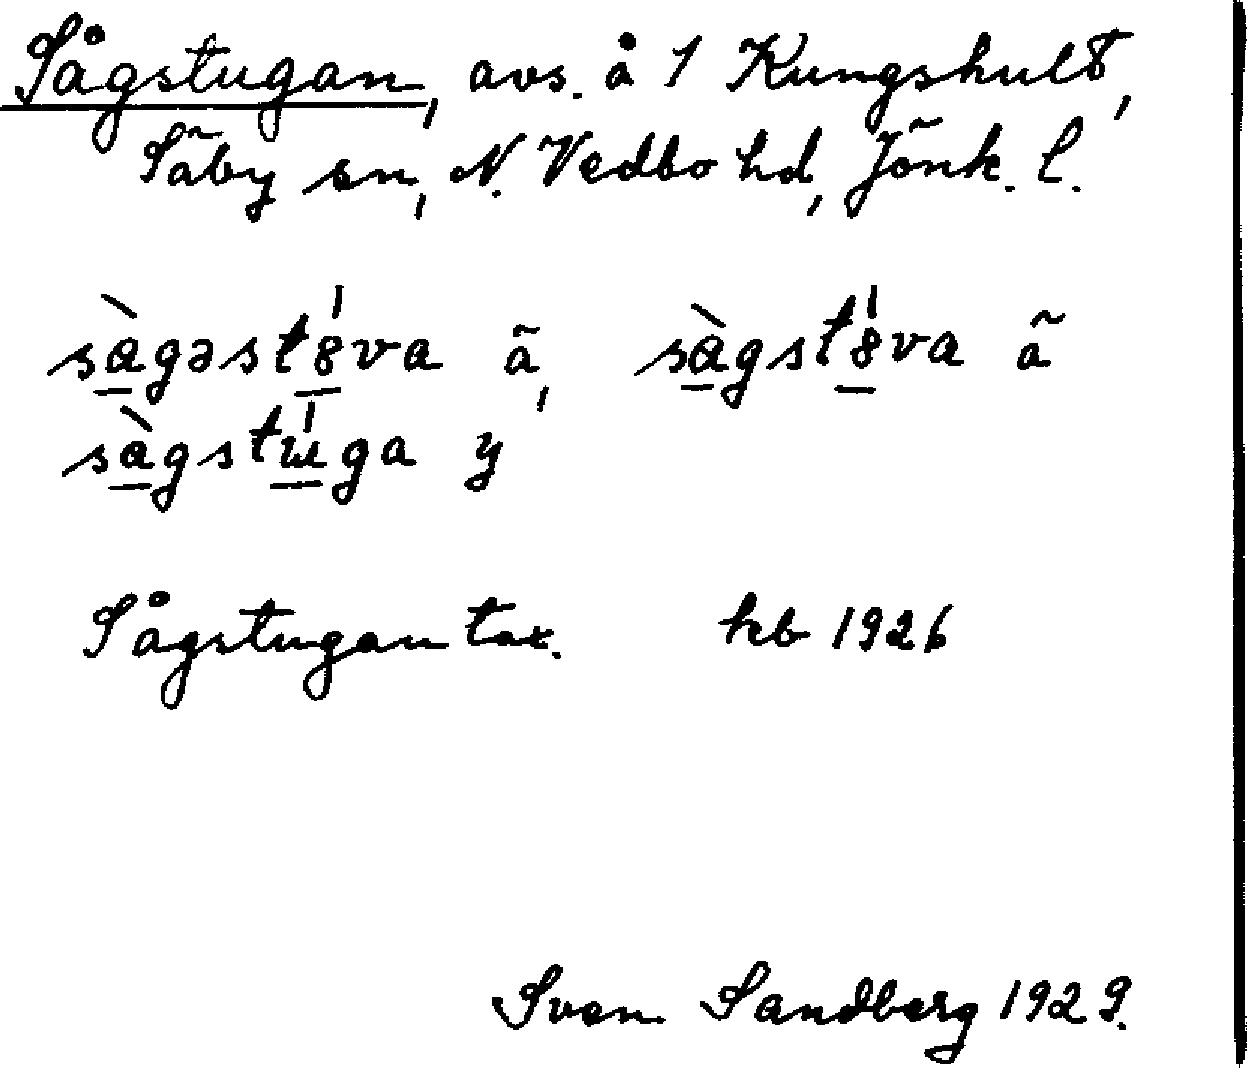 Sågstugan, avs. å 1 Kungshult,
Säby sn, N. Vedbo hd, Jönk. l.
sàgəst8́va ä, sàgst8́va ä
sàgstúga y
Sågstugan tax. hb 1926
Sven Sandberg 1929.